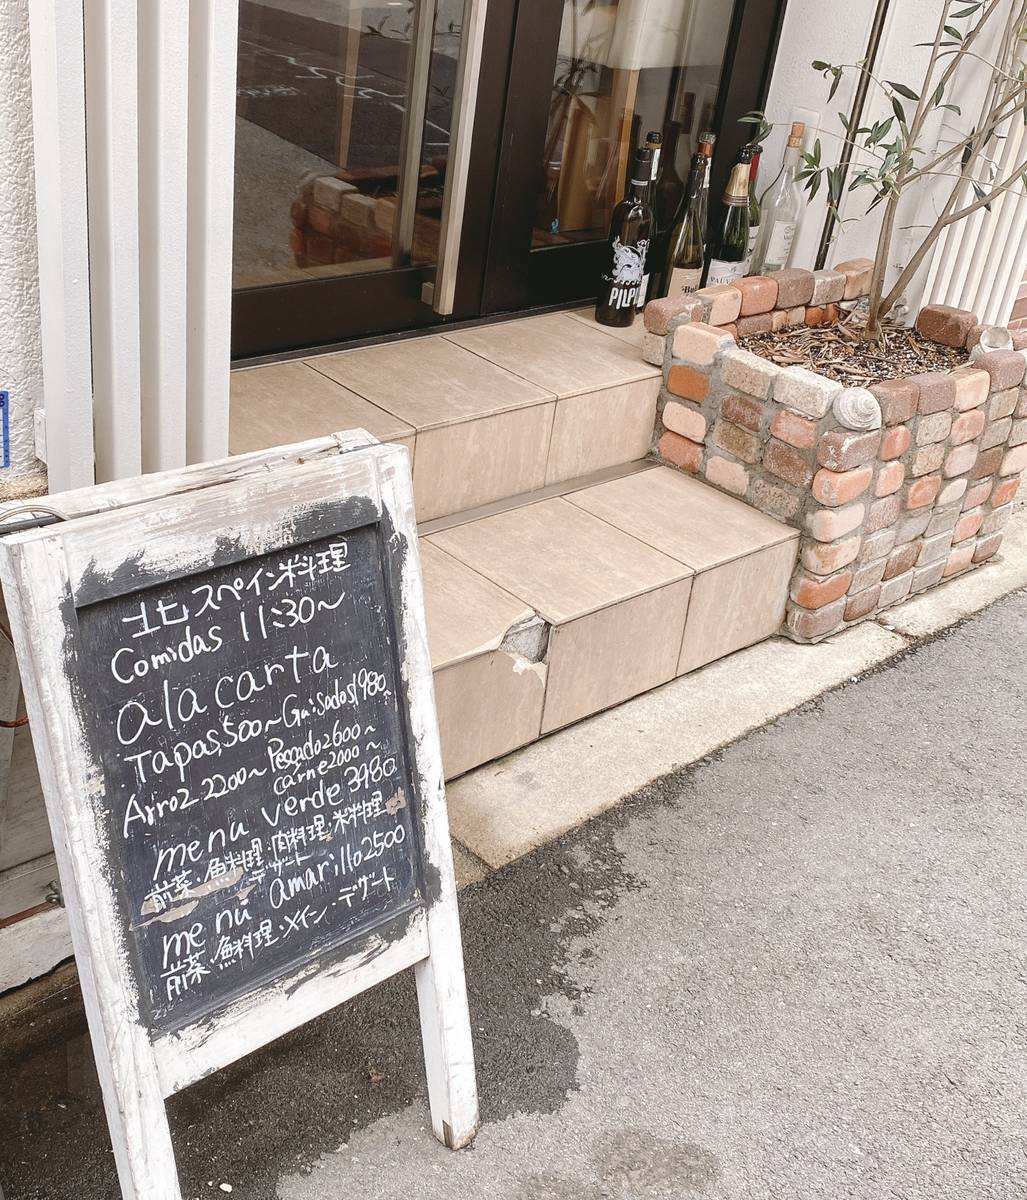 北スペイン料理
Comidas 11:30～
a la carta
Tapas 500～ Guisados 1980～
Arroz 2200～ Pescado 2600～
carne 2000～
menu verde 3980
前菜・魚料理・肉料理・米料理
デザート
menu amarillo 2500
前菜・魚料理・メイン・デザート
PILPIL